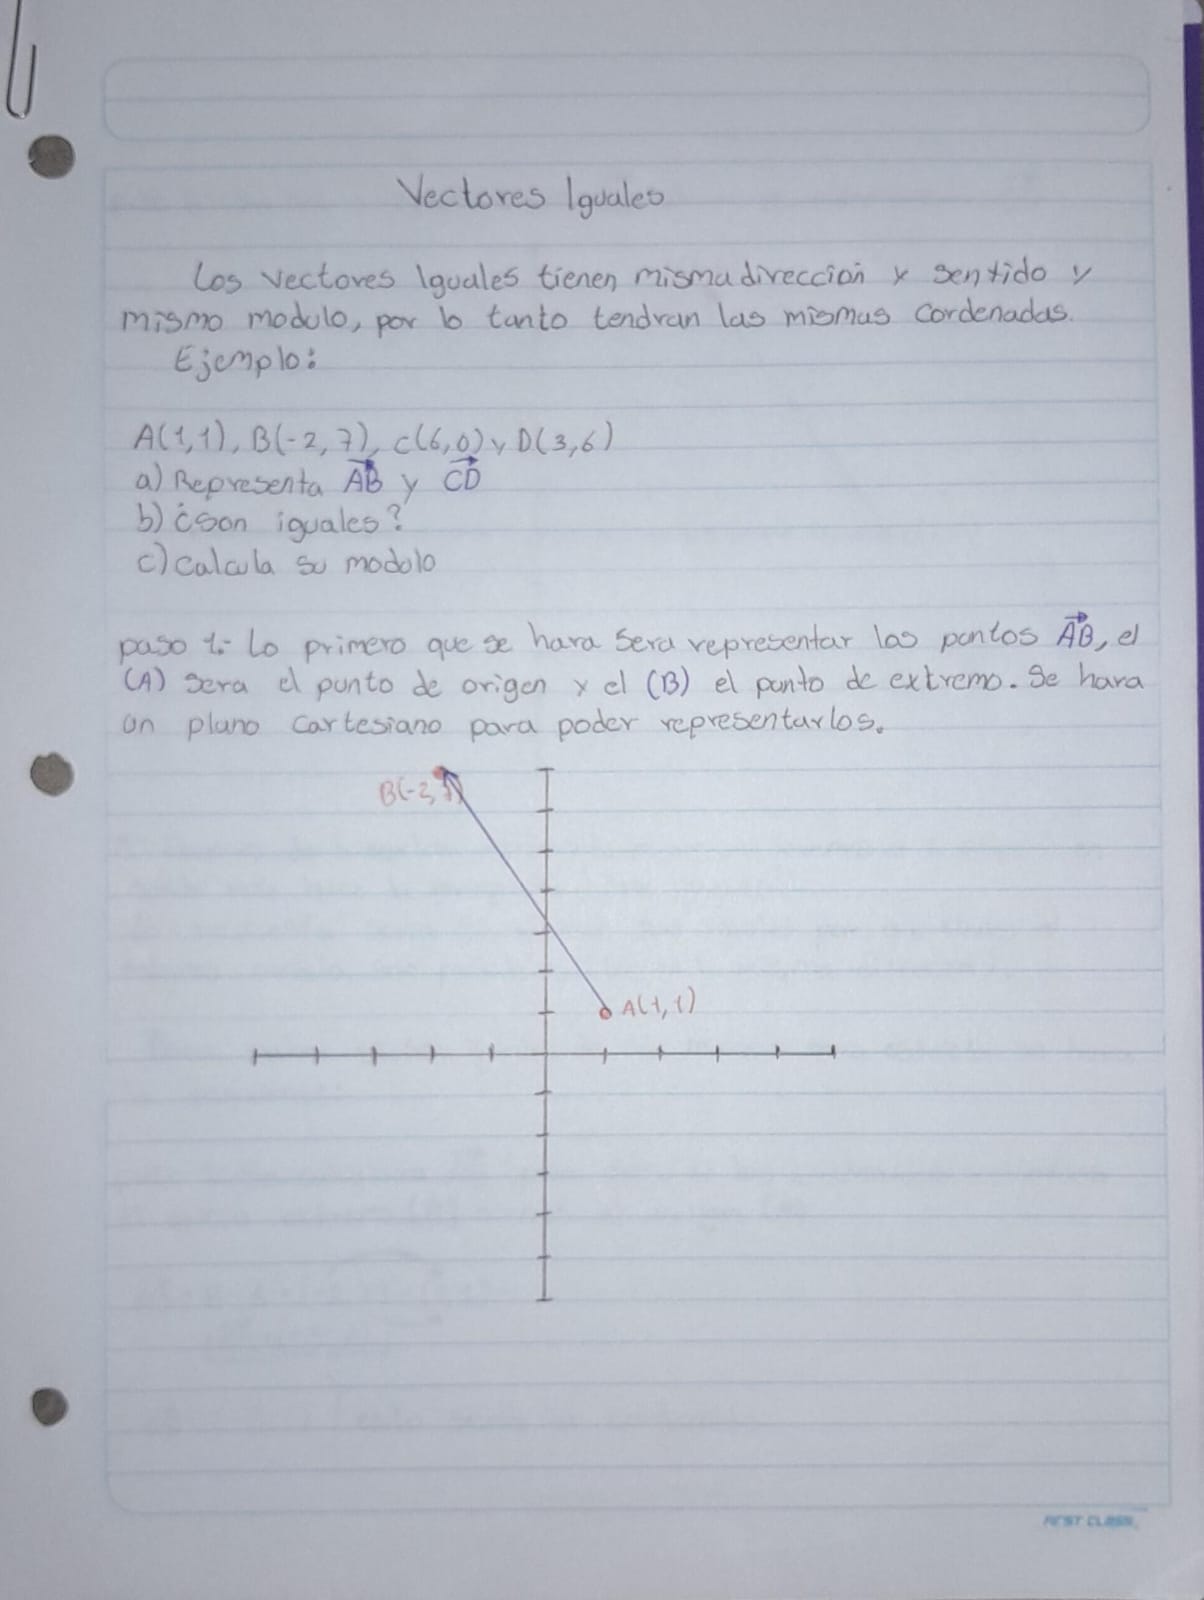 Vectores Iguales
Los vectores Iguales tienen misma direccion y sentido y
mismo modulo, por lo tanto tendran las mismas cordenadas.
Ejemplo:
A(1,1), B(-2,7), C(6,0) y D(3,6)
a) Representa AB y CD
b) ¿Son iguales?
c) Calcula su modulo
paso 1.- Lo primero que se hara sera representar los puntos AB, el
(A) sera el punto de origen y el (B) el punto de extremo. Se hara
un plano cartesiano para poder representarlos.
B(-2,7)
A(1,1)
FIRST CLASS